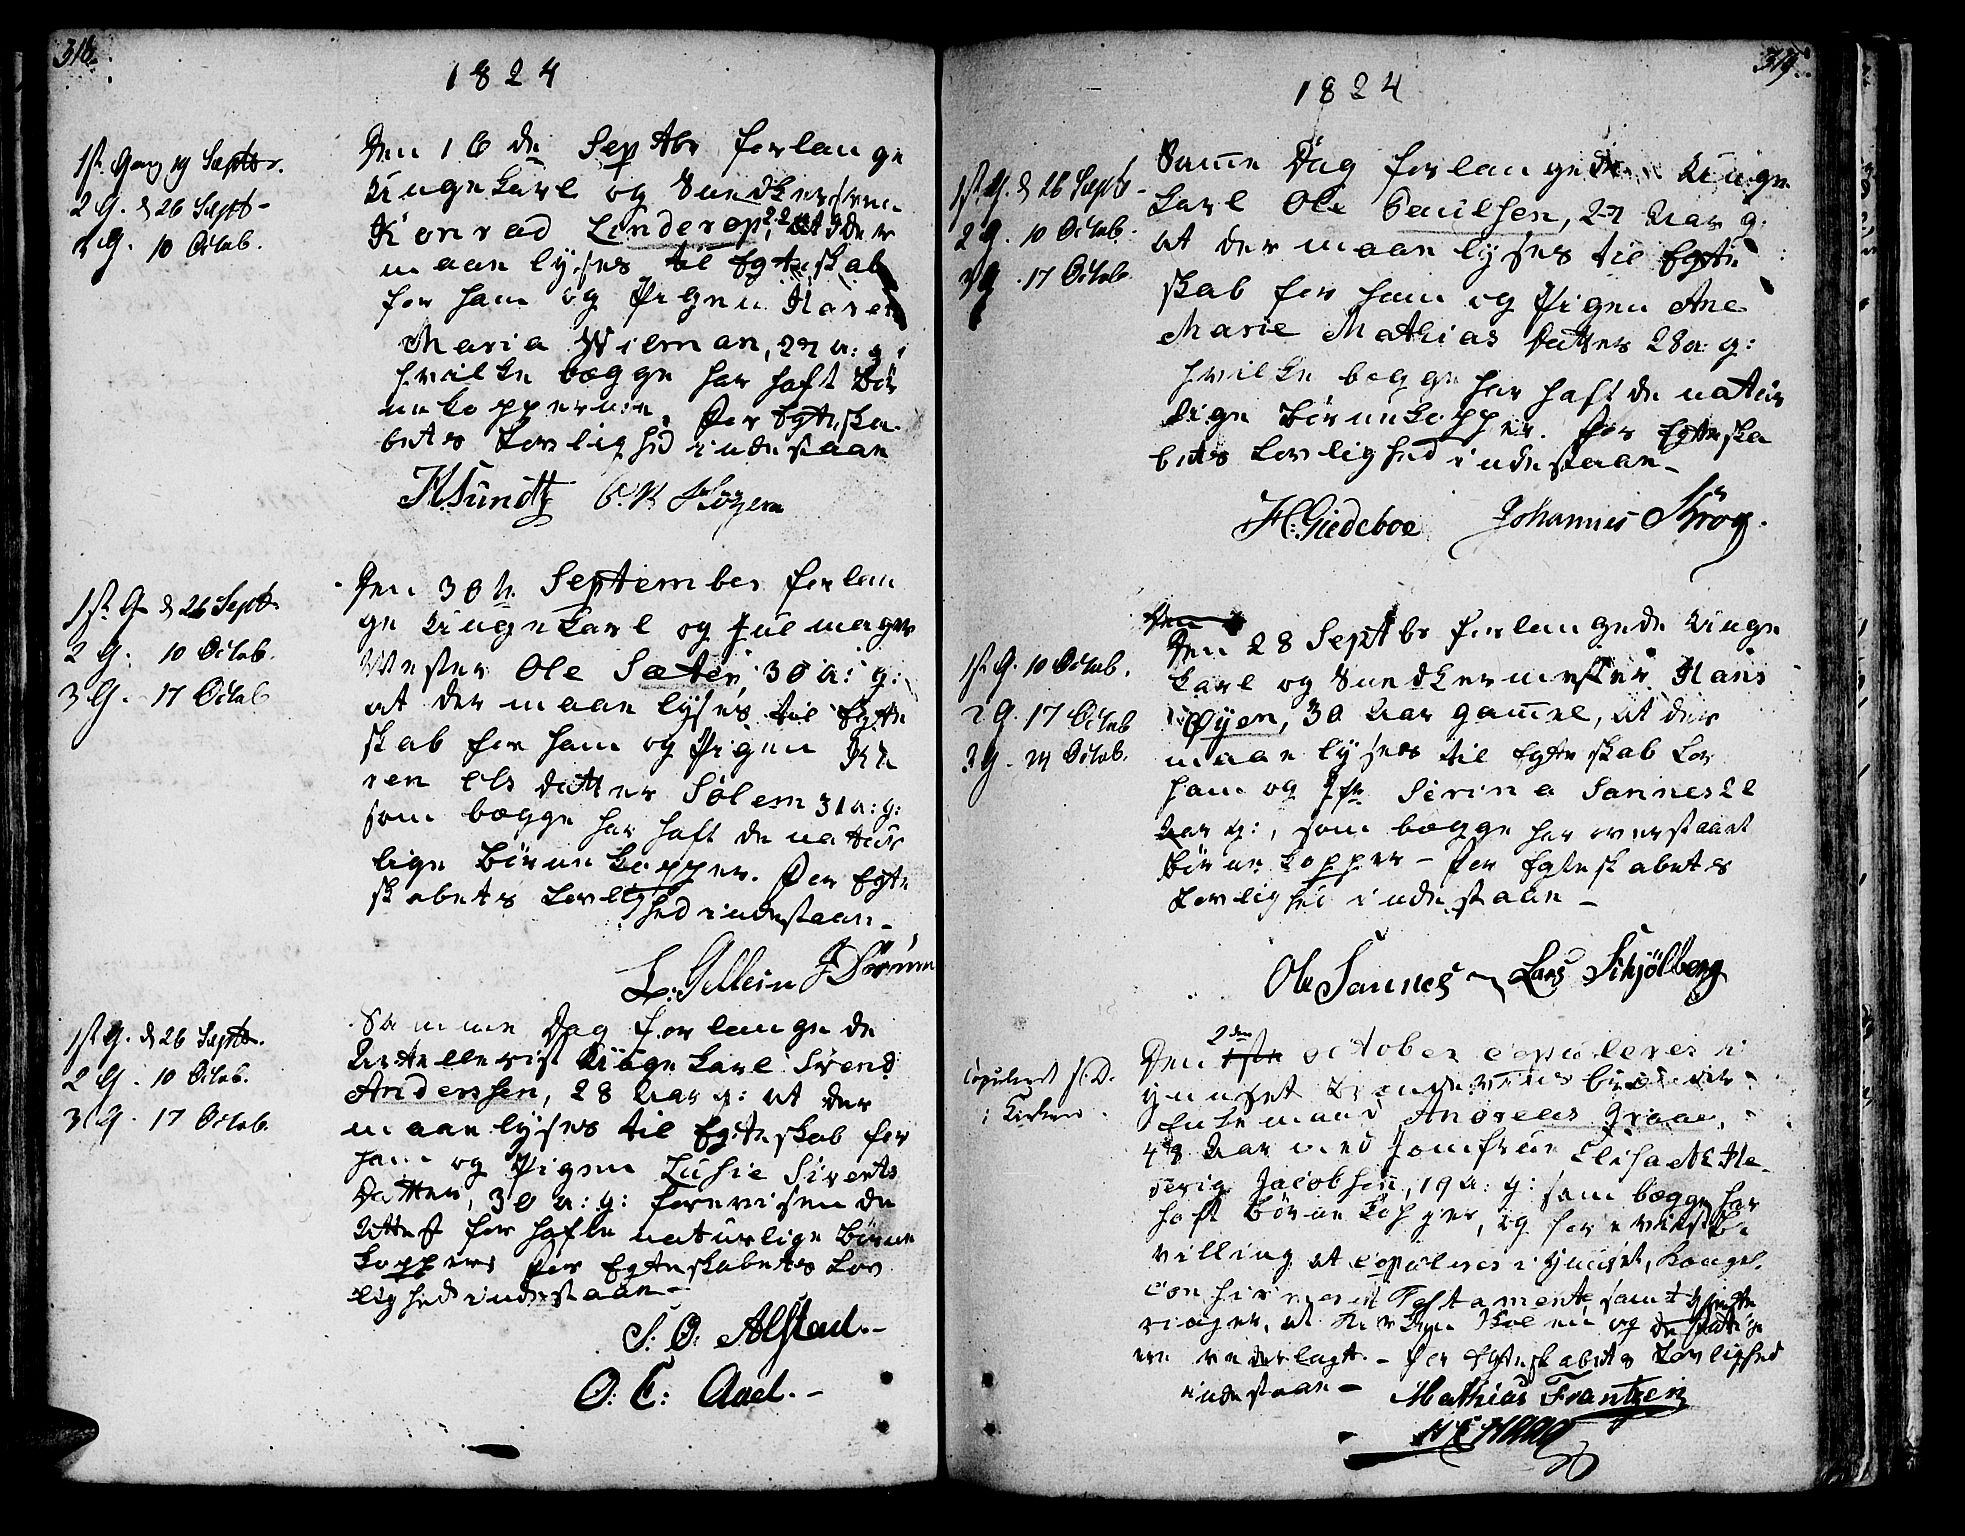 318.
1824
1st Gang 19 Septbr.
2 G. d 26 Septb
3 G. 10 Octob.
Den 16 de Septbr forlan ge
Unge Karl og Snedkersven
Konrad Linderop, 22 at der
maae lyses til Egteskab
for ham og Pigen Karen
Maria Wilman, 27 a: g:
hvilke begge har haft Bør
nekopperne. For Egteska
bets Lovlighed indestaae
K. Sundt
1st G d 26 Septb.
2 G. 10 Octob.
3 G. 17 Octob
Den 30te September forlan
ge Unge Karl og Hjulmager
Mester Ole Sæter, 30 a: g:
at der maae lyses til Egte
skab for ham og Pigen Ka
ren Ols datter Solem 31 a: g:
som begge har haft de natur
lige Børne Kopper. For Egte
skabets Lovlig
hed indestaae
1st G. d 26 Septb.
2 G. 10 Octob.
3 G. 17 Octob.
Samme Dag forlangede
Artellerist Unge Karl Svend
Anderssen, 28 Aar g: at der
maae lyses til Egteskab for
ham og Pigen Lusie Siverts
Datter, 30 a: g: forevisende
Attest for hafte naturlige Børne
Koppers For Egteskabets Lov
lighed indestaae
S. O. Alstad.
O. E: Aael.
319.
1824
1st G. d 26 Septb
2 G. 10 Octob.
3 G. 17 Octob
Samme Dag forlangede Unge
Karl Ole Paulsen, 27 Aar g:
at der maae lyses til Egte
skab for ham og Pigen Ane
Marie Mathias Datter 28 a: g:
hvilke begge har haft de natur
lige Børnekopper. For Egteska
bets Lovlighed indestaae
H. Giedeboe Johannes Krog.
1st G. 10 Octob.
2 G. 17 Octob
3 G. 24 Octob.
Den
Den 28 Septbr forlangede Unge
Karl og Snedkermester Hans
Øyen, 30 Aar gammel, at der
maae lyses til Egteskab for
ham og Jfr Serina Sannes 22
Aar g:, som begge har overstaaet
Børne Kopper - For Egteskabets
Lovlighed indestaae
Ole Sannes Lars Schjølberg
Copuleret
i Kirken
2den
Den 1ste October copuleres i
Huuset
Andreas Graae,
48 Aar med Jomfrue Elisabet He
Jacobsen, 19 a: g: som begge har
haft Børne Kopper, og
villing at copuleres i Huuset, Kongel.
confirmerit Testamente, samt
at Kirken Skolen og
ere vederlagt. - For Egteskabets Lovlighed
indestaae - Mathias Frantzen